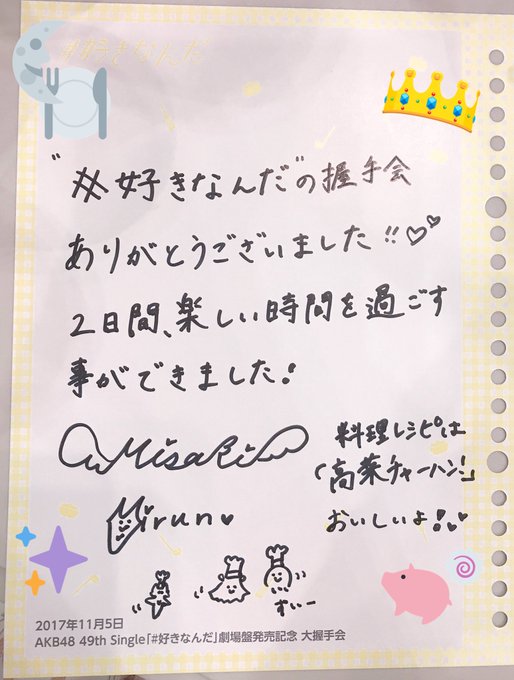 #好きなんだ
"#好きなんだ"の握手会
ありがとうございました!!♡♡
2日間、楽しい時間を過ごす
事ができました!
Misaki
料理レシピは
「高菜チャーハン!」
おいしいよ!♡
Mirun♡
すいー
2017年11月5日
AKB48 49th Single「#好きなんだ」劇場盤発売記念 大握手会